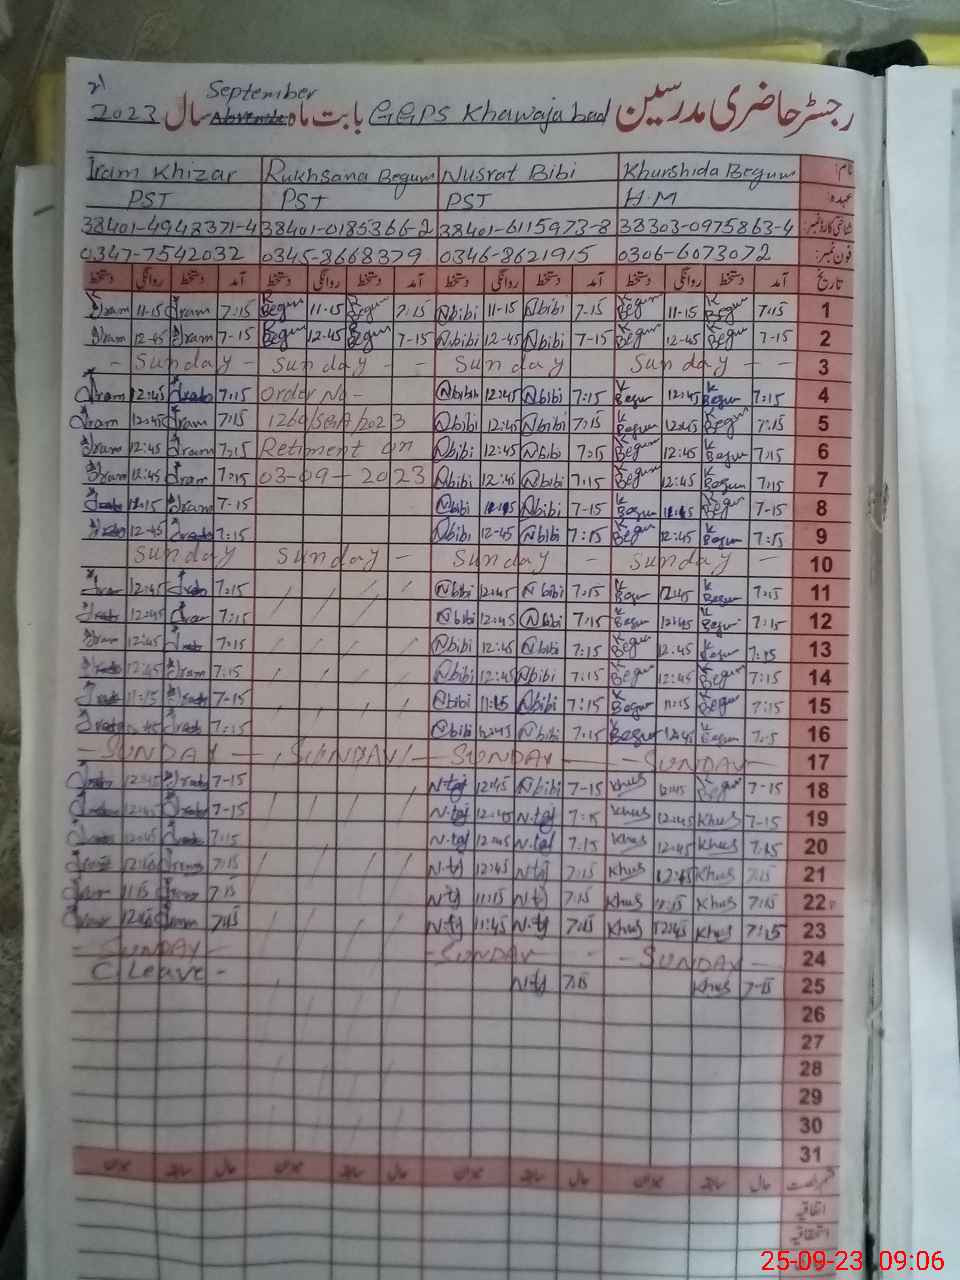 رجسٹر حاضری مدرسین GGPS Khawajabad بابت ماہ September سال 2023
نام: Khurshida Begum Nusrat Bibi Rukhsana Begum Iram Khizar
عہدہ: H.M PST PST PST
شناختی کارڈ نمبر: 38303-0975863-4 38401-6115973-8 38401-0185366-2 38401-4948371-4
فون نمبر: 0306-6073072 0346-8621915 0345-8668379 0347-7542032
تاریخ آمد دستخط روانگی دستخط آمد دستخط روانگی دستخط آمد دستخط روانگی دستخط آمد دستخط روانگی دستخط
1 7:15 K Begum 11-15 K Begum 7-15 Nbibi 11-15 Nbibi 7:15 K Begum 11-15 K Begum 7:15 Iram 11-15 Iram
2 7-15 K Begum 12-45 K Begum 7-15 Nbibi 12-45 Nbibi 7-15 Begum 12-45 Begum 7-15 Iram 12-45 Iram
3 - Sunday - - Sunday - Sunday - - Sunday -
4 7:15 K Begum 12:45 K Begum 7:15 Nbibi 12:45 Nbibi Order No - 7:15 12:45 Iram
5 7:15 K Begum 12:45 K Begum 7:15 Nbibi 12:45 Nbibi 7:15 Iram 12:45 Iram
6 7:15 K Begum 12:45 K Begum 7:15 Nbibi 12:45 Nbibi Retirment on 7:15 Iram 12:45 Iram
7 7:15 K Begum 12:45 K Begum 7:15 Nbibi 12:45 Nbibi 03-09-2023 7:15 Iram 12:45 Iram
8 7-15 K Begum 11:15 K Begum 7-15 Nbibi 11:15 Nbibi 7-15 Iram 11:15
9 7:15 K Begum 12:45 K Begum 7:15 Nbibi 12-45 Nbibi 7:15 12-45
10 - Sunday - Sunday - Sunday Sunday
11 7:15 K Begum 12:45 K Begum 7:15 Nbibi 12:45 Nbibi 7:15 12:45
12 7:15 K Begum 12:45 K Begum 7:15 Nbibi 12:45 Nbibi 7:15 12:45
13 7:15 K Begum 12:45 K Begum 7:15 Nbibi 12:45 Nbibi 7:15 12:45 Iram
14 7:15 K Begum 12:45 K Begum 7:15 Nbibi 12:45 Nbibi 7:15 Iram 12:45
15 7:15 K Begum 11:15 K Begum 7:15 Nbibi 11:15 Nbibi 7-15 11:15
16 7:15 K Begum 12:45 Begum 7:15 Nbibi 12:45 Nbibi 7:15
17 SUNDAY SUNDAY SUNDAY SUNDAY
18 7-15 K Begum 12:45 Khus 7-15 Nbibi 12:45 N.taj 7-15 12:45
19 7-15 Khus 12:45 Khus 7:15 N.taj 12:45 N.taj 7-15 12:45
20 7:15 Khus 12:45 Khus 7:15 N.taj 12:45 N.taj 7:15 12:45
21 7:15 Khus 12:45 Khus 7:15 N.tj 12:45 N.tj 7:15
22 7:15 Khus 11:15 Khus 7:15 N.tj 11:15 N.tj 7:15 11:15
23 7:15 Khus 12:45 Khus 7:15 N-tj 11:45 N-tj 7:15 12:45
24 - SUNDAY - - SUNDAY SUNDAY
25 7-15 Khus 7:15 N-tj C Leave -
26
27
28
29
30
31
حال سابقہ میزان حال سابقہ میزان حال سابقہ میزان حال سابقہ میزان
اتفاقیہ
استحقاقیہ
25-09-23 09:06